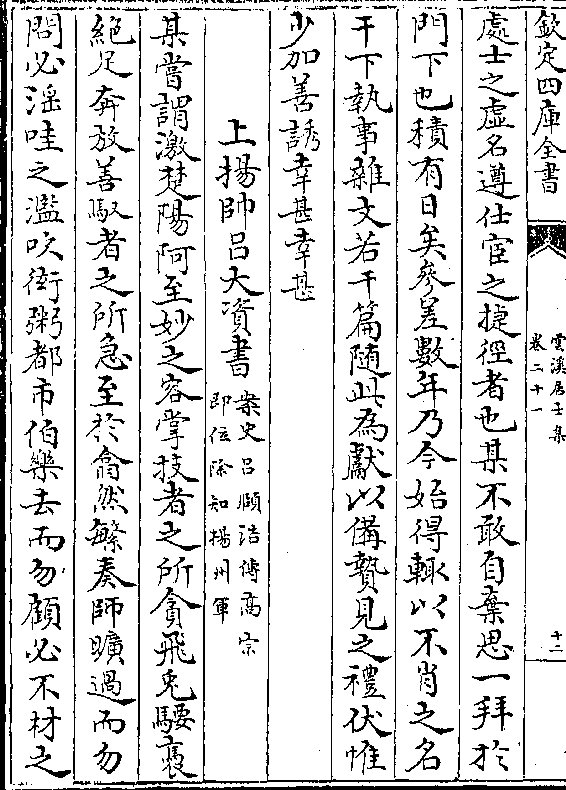 欽定四庫全書
雲溪居士集
卷二十一
十二
處士之虛名遵仕宦之捷徑者也某不敢自棄思一拜於
門下也積有日矣參差數年乃今始得輙以不肖之名
干下執事雜文若干篇随此為獻以備贄見之禮伏惟
少加善誘幸甚幸甚
上揚帥吕大資書
案史吕頥浩傳高宗
即位除知揚州軍
某嘗謂激楚陽阿至妙之容掌技者之所貪飛兎騕褭
絶足奔放善馭者之所急至於翕然繁奏師曠過而勿
問必淫哇之濫吹衒粥都市伯樂去而勿顧必不材之